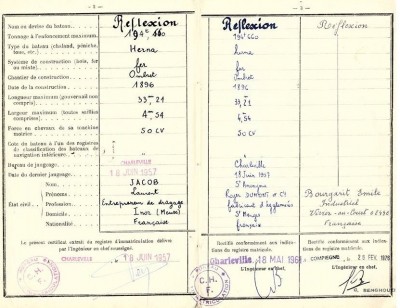 — 2 —
Nom ou devise du bateau
Reflexion
Tonnage à l'enfoncement maximum
194ᵗ 660
Type du bateau (chaland, péniche, toue, etc.)
Herna
Système de construction (bois, fer ou mixte)
fer
Chantier de construction
Date de la construction
1896
Longueur maximum (gouvernail non compris)
33ᵐ 21
Largeur maximum (toutes saillies comprises)
4ᵐ 54
Force en chevaux de sa machine motrice
50 CV
Cote du bateau à l'un des registres de classification des bateaux de navigation intérieure
Bureau de jaugeage
CHARLEVILLE
Date du dernier jaugeage
18 JUIN 1957
État civil
Nom
JACOB
Prénoms
Laurent
Profession
Entrepreneur de dragage
Domicile
Inor (Meuse)
Nationalité
Française
Le présent certificat extrait du registre d'immatriculation délivré par l'Ingénieur en chef soussigné.
CHARLEVILLE
18 JUIN 1957
C. H. F.
— 3 —
Reflexion
194ᵗ 660
fer
1896
33,21
4,54
50 CV
Charleville
18 Juin 1957
Roger
fabricant d'agglomérés
St Menges
français
Rectifié conformément aux indications du registre matricule.
Charleville
18 MAI 1961
L'Ingénieur en chef,
C. H. F.
Reflexion
Bourgait Emile
Industriel
Française
Rectifié conformément aux indications du registre matricule.
COMPIEGNE
28 FEV 1978
L'Ingénieur en chef,